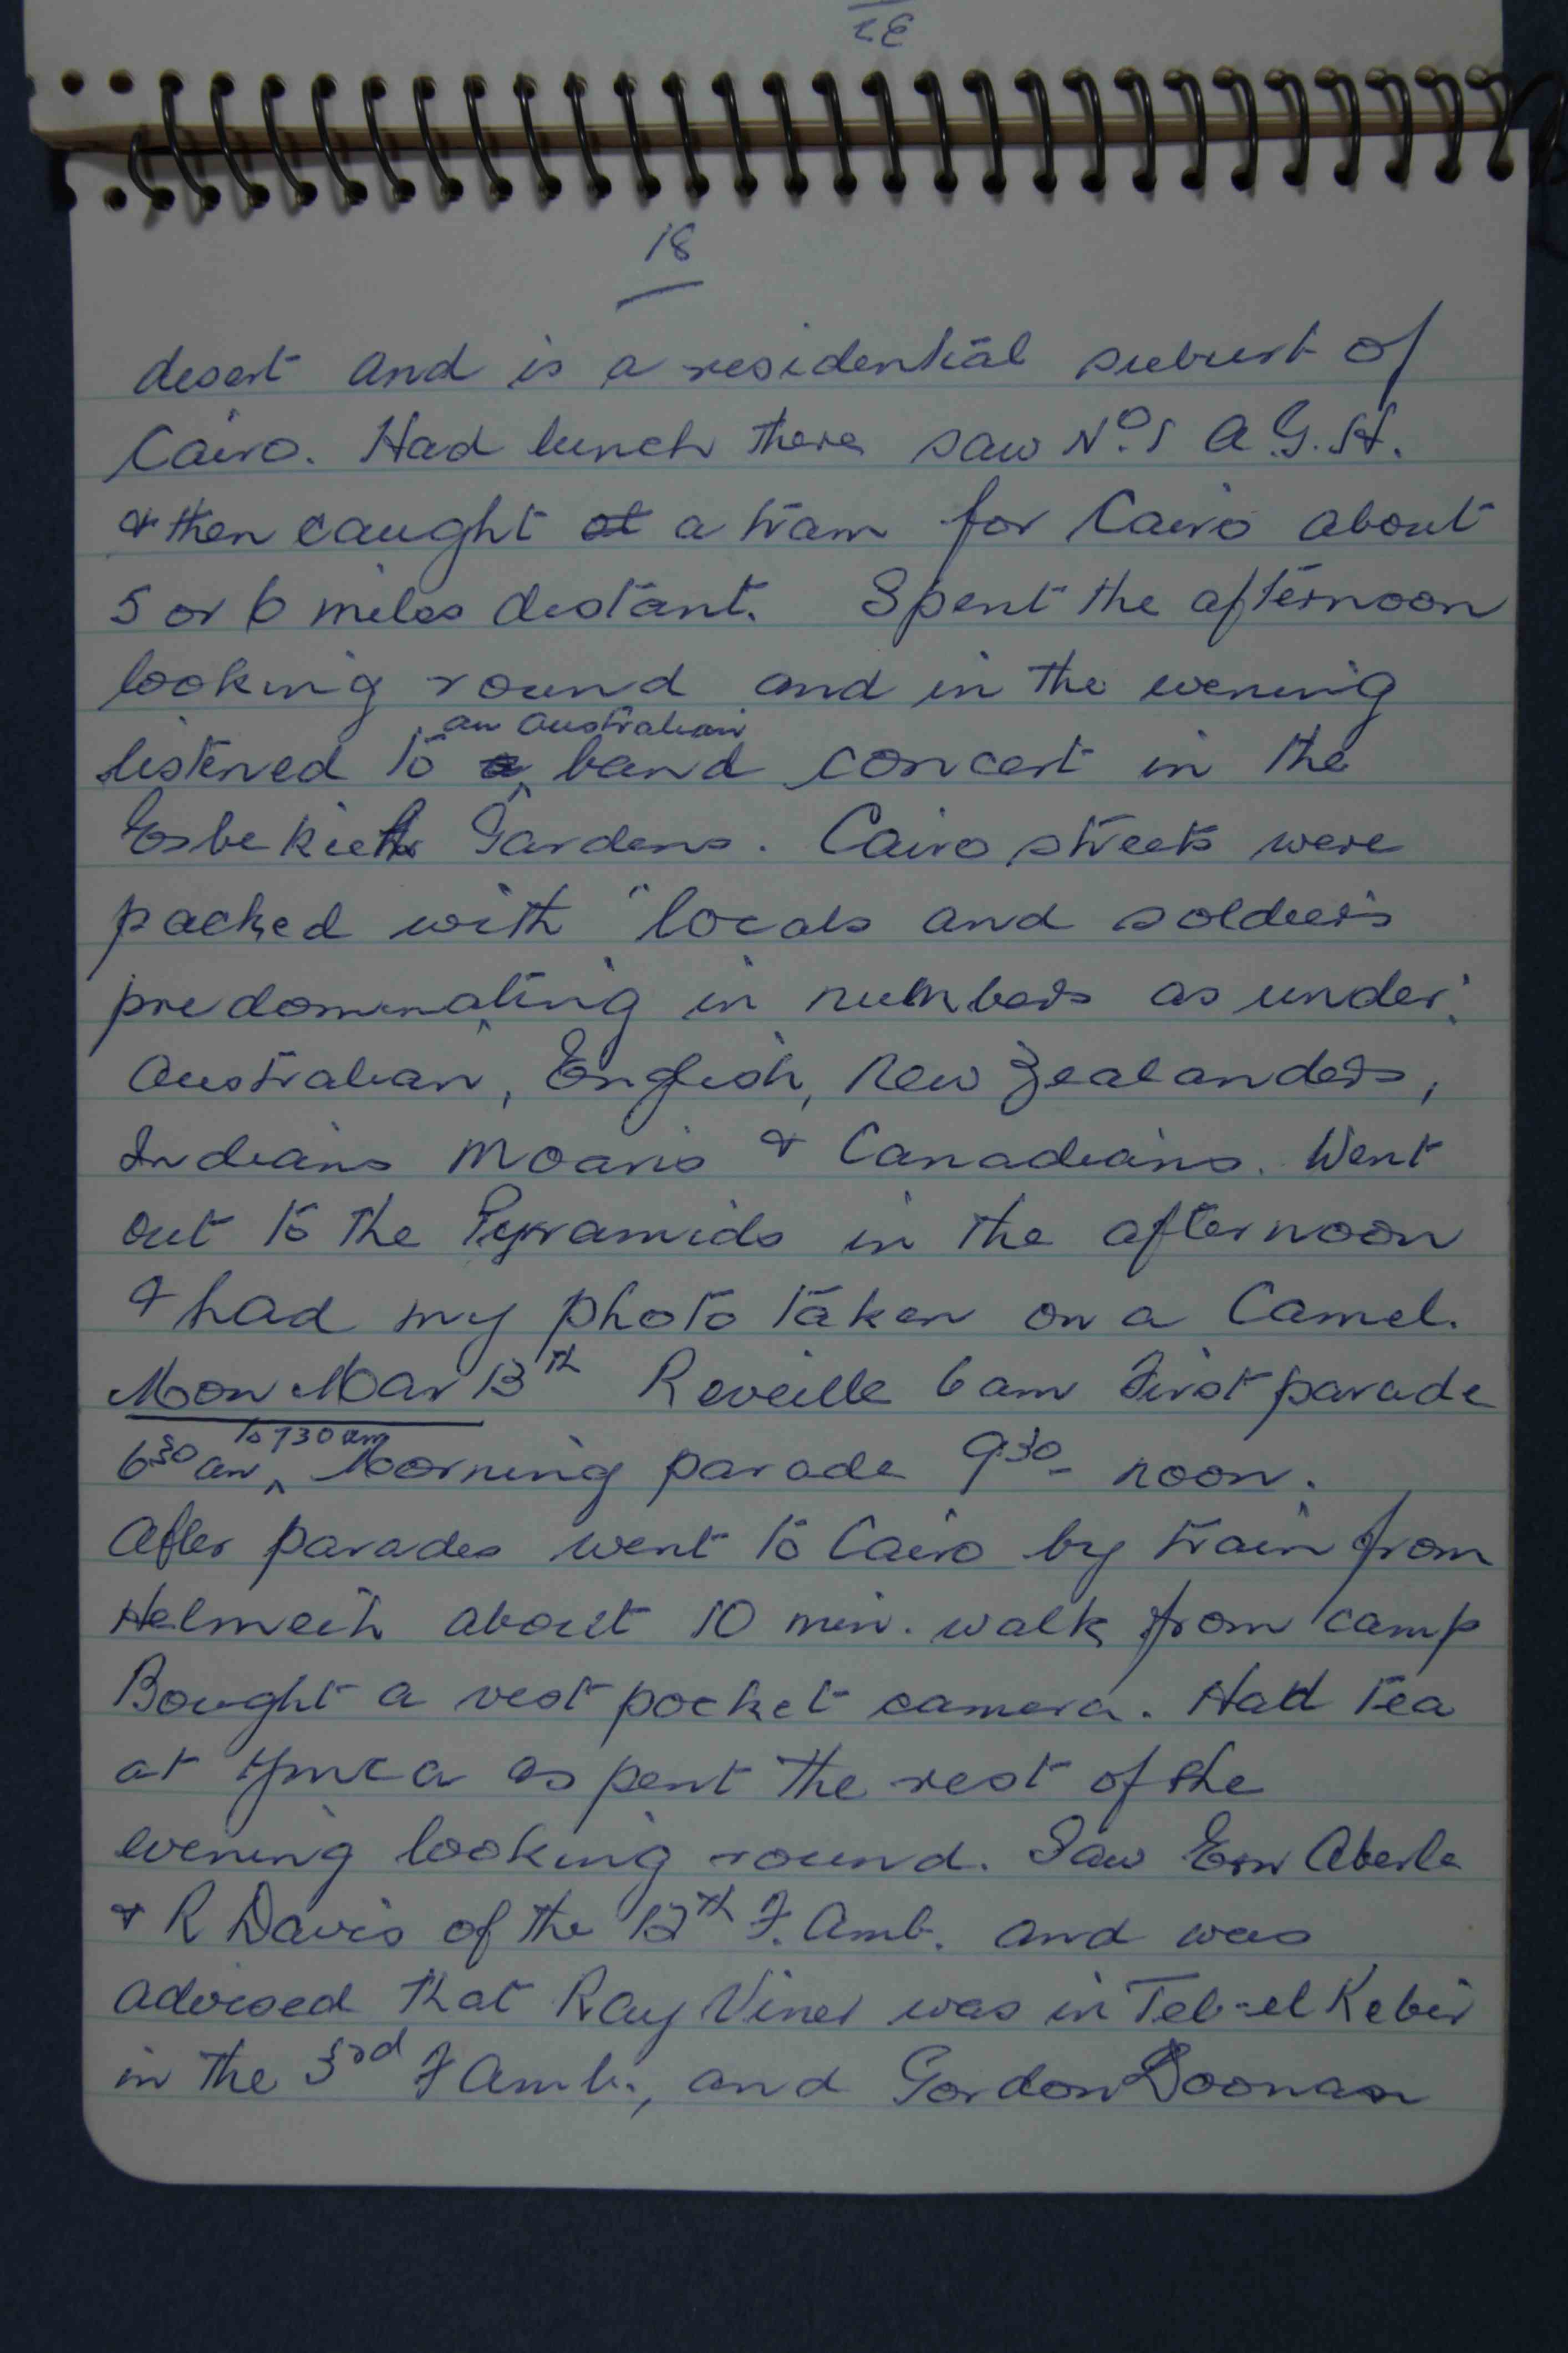 18
desert and is a residential suburb of
Cairo. Had lunch there saw No. 1 A.G.H.
& then caught at a tram for Cairo about
5 or 6 miles distant. Spent the afternoon
looking round and in the evening
listened to a ^an Australian band concert in the
Esbekieh Gardens. Cairo streets were
packed with "locals and soldiers
predominating in numbers as under:
Australian, English, New Zealanders,
Indians Moaris & Canadians. Went
out to the Pyramids in the afternoon
& had my photo taken on a Camel.
Mon Mar 13th Reveille 6 am First parade
6 30 am ^to 7 30 am Morning parade 9.30 - noon.
After parades went to Cairo by train from
Helmeih about 10 min. walk from camp
Bought a vest pocket camera. Had tea
at Ymca & spent the rest of the
evening looking round. Saw Ern Aberle
& R Davis of the 12th F. Amb. and was
advised that Ray Viner was in Tel-el Kebir
in the 3rd F Amb., and Gordon Doonan